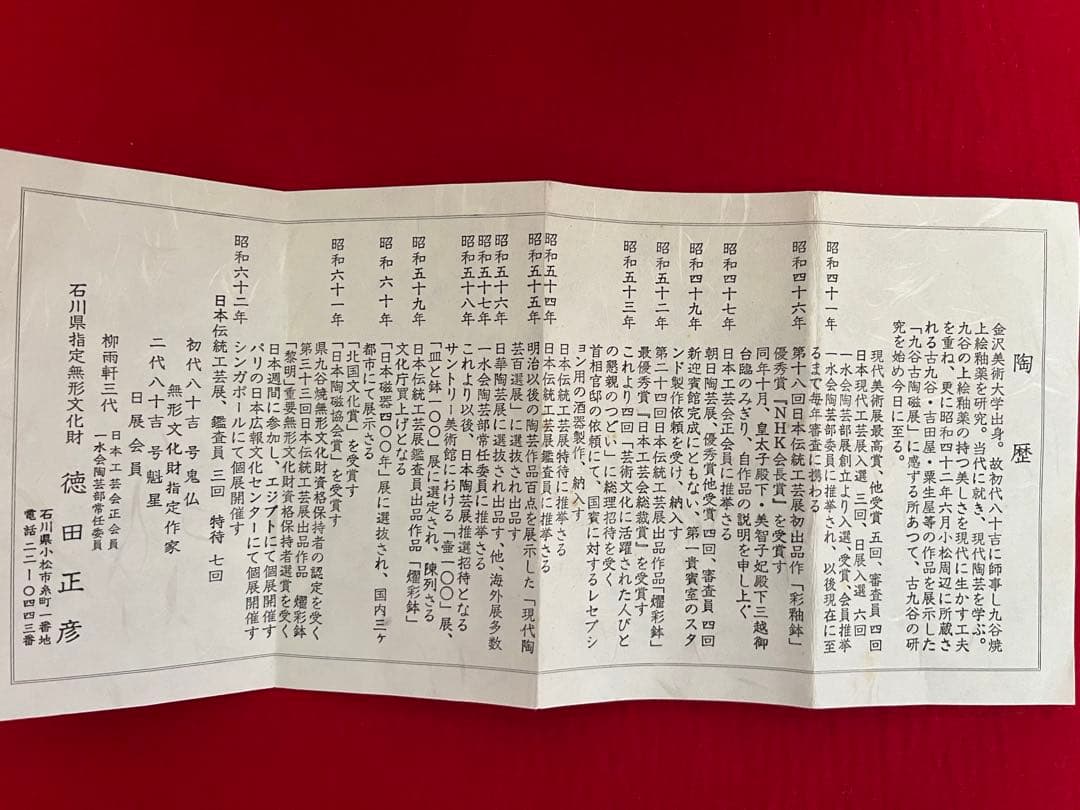 陶歴
金沢美術大学出身。故初代八十吉に師事し九谷焼
上絵釉薬を研究。当代に就き、現代陶芸を学ぶ。
九谷の上絵釉薬の持つ美しさを現代に生かす工夫
を重ね、更に昭和四十二年六月小松周辺に所蔵さ
れる古九谷・吉田屋・粟生屋等の作品を展示した
「九谷古陶磁展」に感ずる所あつて、古九谷の研
究を始め今日に至る。
現代美術展最高賞、他受賞 五回、審査員 四回
日本現代工芸展入選 三回、日展入選 六回
昭和四十一年 一水会陶芸部展創立より入選、受賞、会員推挙
一水会陶芸部委員に推挙され、以後現在に至
るまで毎年審査に携わる
昭和四十六年 第十八回日本伝統工芸展初出品作「彩釉鉢」
優秀賞『NHK会長賞』を受賞す
同年十月、皇太子殿下・美智子妃殿下三越御
台臨のみぎり、自作品の説明を申し上ぐ
昭和四十七年 日本工芸会正会員に推挙さる
朝日陶芸展、優秀賞他受賞 四回、審査員 四回
昭和四十九年 新迎賓館完成にともない、第一貴賓室のスタ
ンド製作依頼を受け、納入す
昭和五十二年 第二十四回日本伝統工芸展出品作品「燿彩鉢」
最優秀賞『日本工芸会総裁賞』を受賞す
昭和五十三年 これより四回「芸術文化に活躍された人びと
の懇親のつどい」に総理招待を受く
首相官邸の依頼にて、国賓に対するレセプシ
ョン用の酒器製作、納入す
日本伝統工芸展特待に推挙さる
昭和五十四年 日本伝統工芸展鑑査員に推挙さる
昭和五十五年 明治以後の陶芸作品百点を展示した「現代陶
芸百選展」に選抜され出品す
昭和五十六年 日華陶芸展に選抜され出品す、他、海外展多数
昭和五十七年 一水会陶芸部常任委員に推挙さる
昭和五十八年 これより以後、日本陶芸展推選招待となる
サントリー美術館における「壷一〇〇」展、
「皿と鉢一〇〇」展に選定され、陳列さる
昭和五十九年 日本伝統工芸展鑑査員出品作品「燿彩鉢」
文化庁買上げとなる
昭和六十年 「日本磁器四〇〇年」展に選抜され、国内三ヶ
都市にて展示さる
「北国文化賞」を受賞す
昭和六十一年 「日本陶磁協会賞」を受賞す
県九谷焼無形文化財資格保持者の認定を受く
第三十三回日本伝統工芸展出品作品 燿彩鉢
「黎明」重要無形文化財資格保持者選賞を受く
日本週間に参加し、エジプトにて個展開催す
パリの日本広報文化センターにて個展開催す
昭和六十二年 シンガポールにて個展開催す
日本伝統工芸展、鑑査員 三回 特待 七回
初代八十吉 号鬼仏
無形文化財指定作家
二代八十吉 号魁星
日展会員
柳雨軒三代 日本工芸会正会員
一水会陶芸部常任委員
石川県指定無形文化財 徳田正彦
石川県小松市糸町一番地
電話二二―〇四四三番